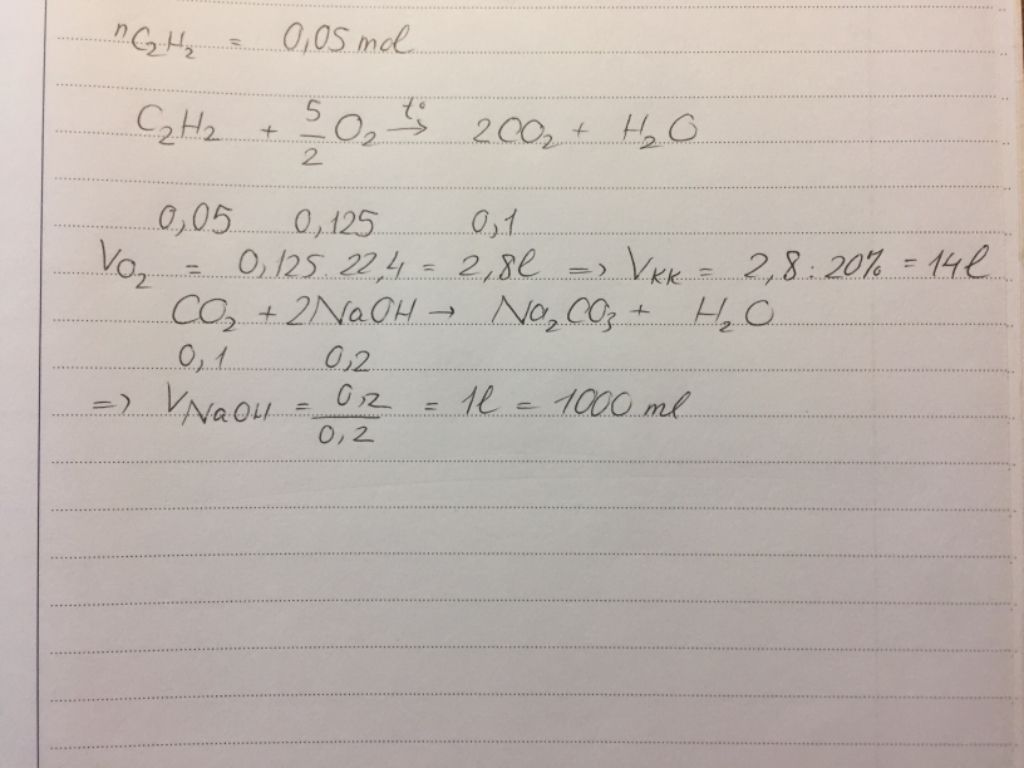 nC₂H₂ = 0,05 mol
C₂H₂ + 5/2 O₂ →t° 2CO₂ + H₂O
0,05 0,125 0,1
VO₂ = 0,125. 22,4 = 2,8l => VKK = 2,8 : 20% = 14l
CO₂ + 2NaOH → Na₂CO₃ + H₂O
0,1 0,2
=> VNaOH = 0,2/0,2 = 1l = 1000 ml